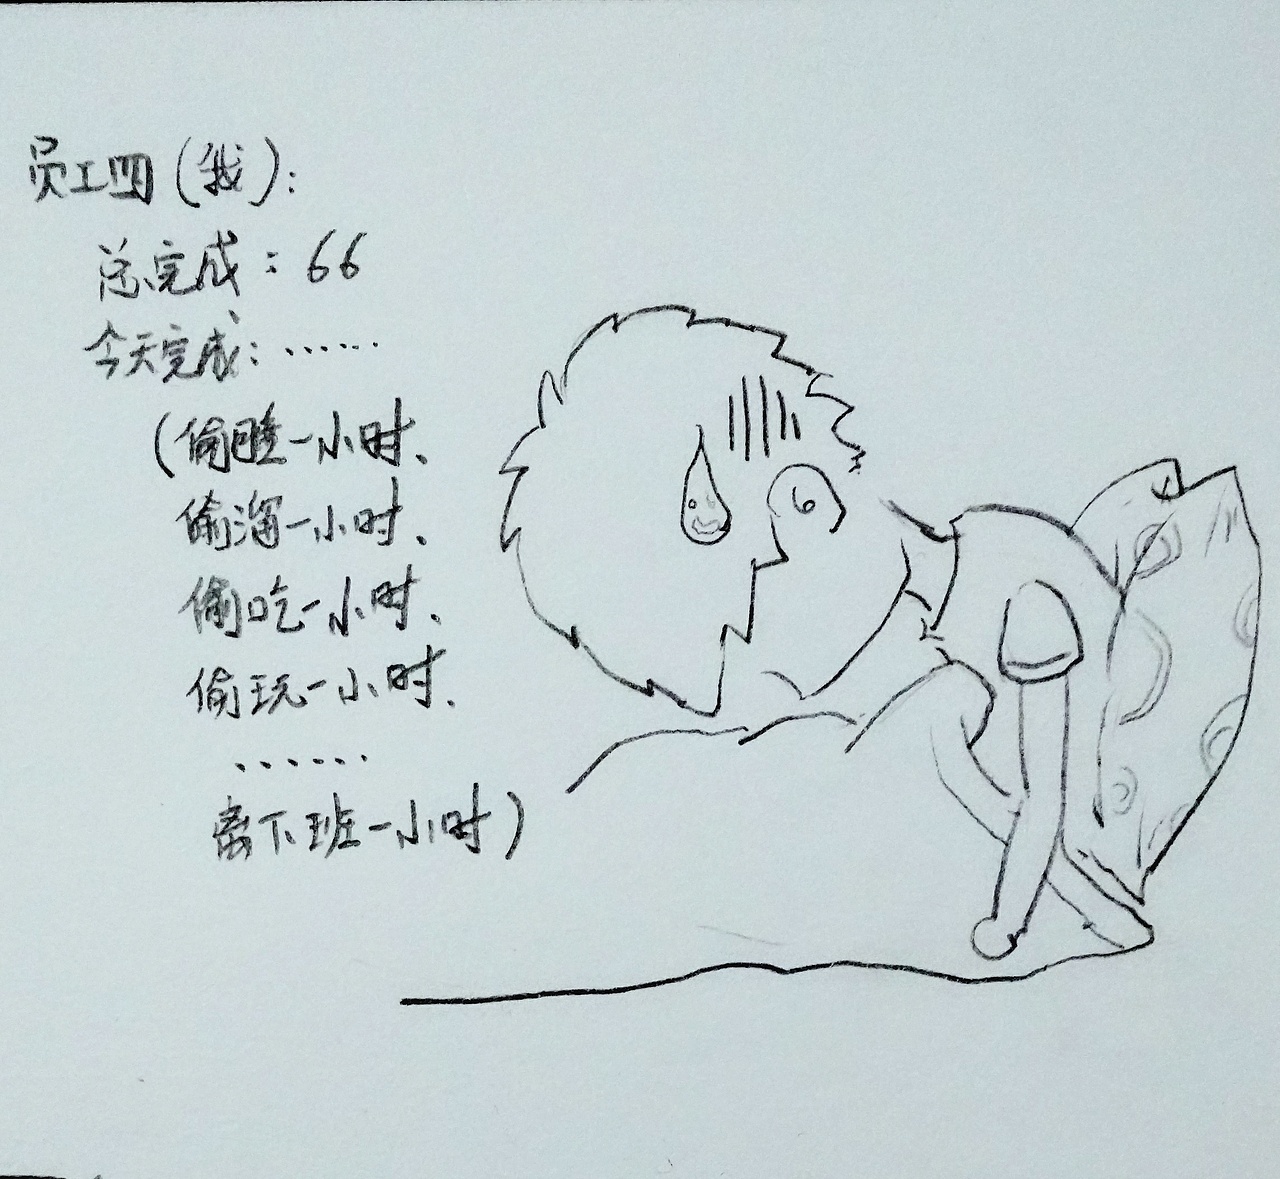 员工四(我):
总完成:66
今天完成:……
(偷睡一小时、
偷溜一小时、
偷吃一小时、
偷玩一小时、
……
离下班一小时)